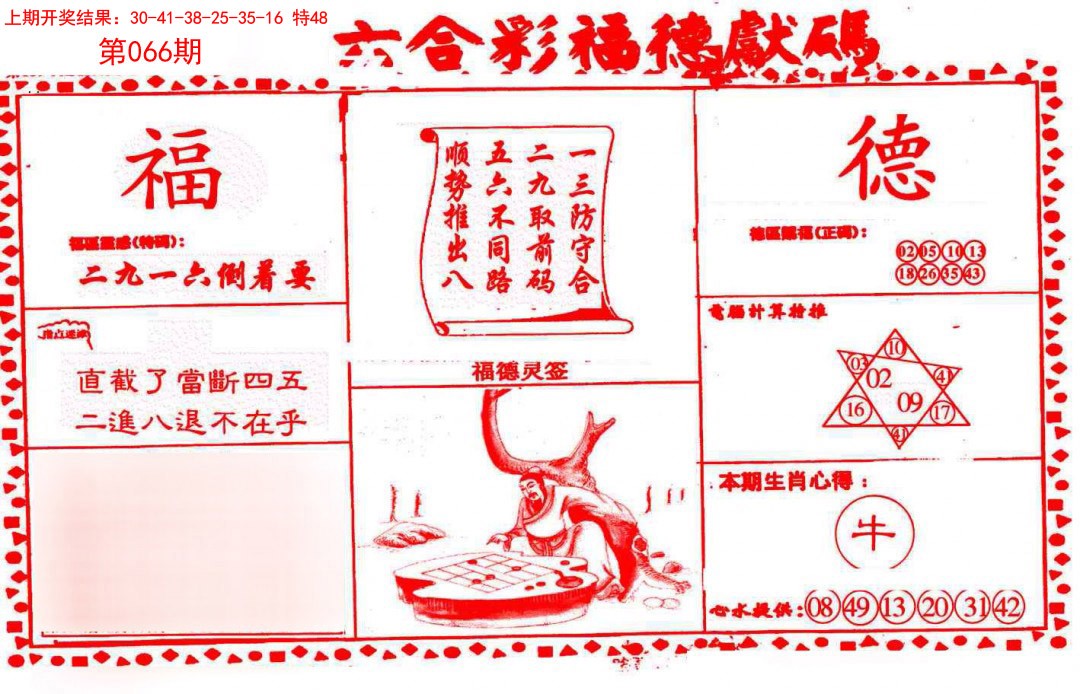 上期开奖结果：30-41-38-25-35-16 特48
第066期
六合彩福德獻碼
福
福區靈感(特碼)：
二九一六倒着要
指点迷津
直截了當斷四五
二進八退不在乎
一三防守合
二九取前码
五六不同路
顺势推出八
福德灵签
德
德區賜福(正码)：
02 05 10 13
18 26 35 43
電腦計算拾推
10
03 02 41
16 09 17
41
本期生肖心得：
牛
心水提供：08 49 13 20 31 42